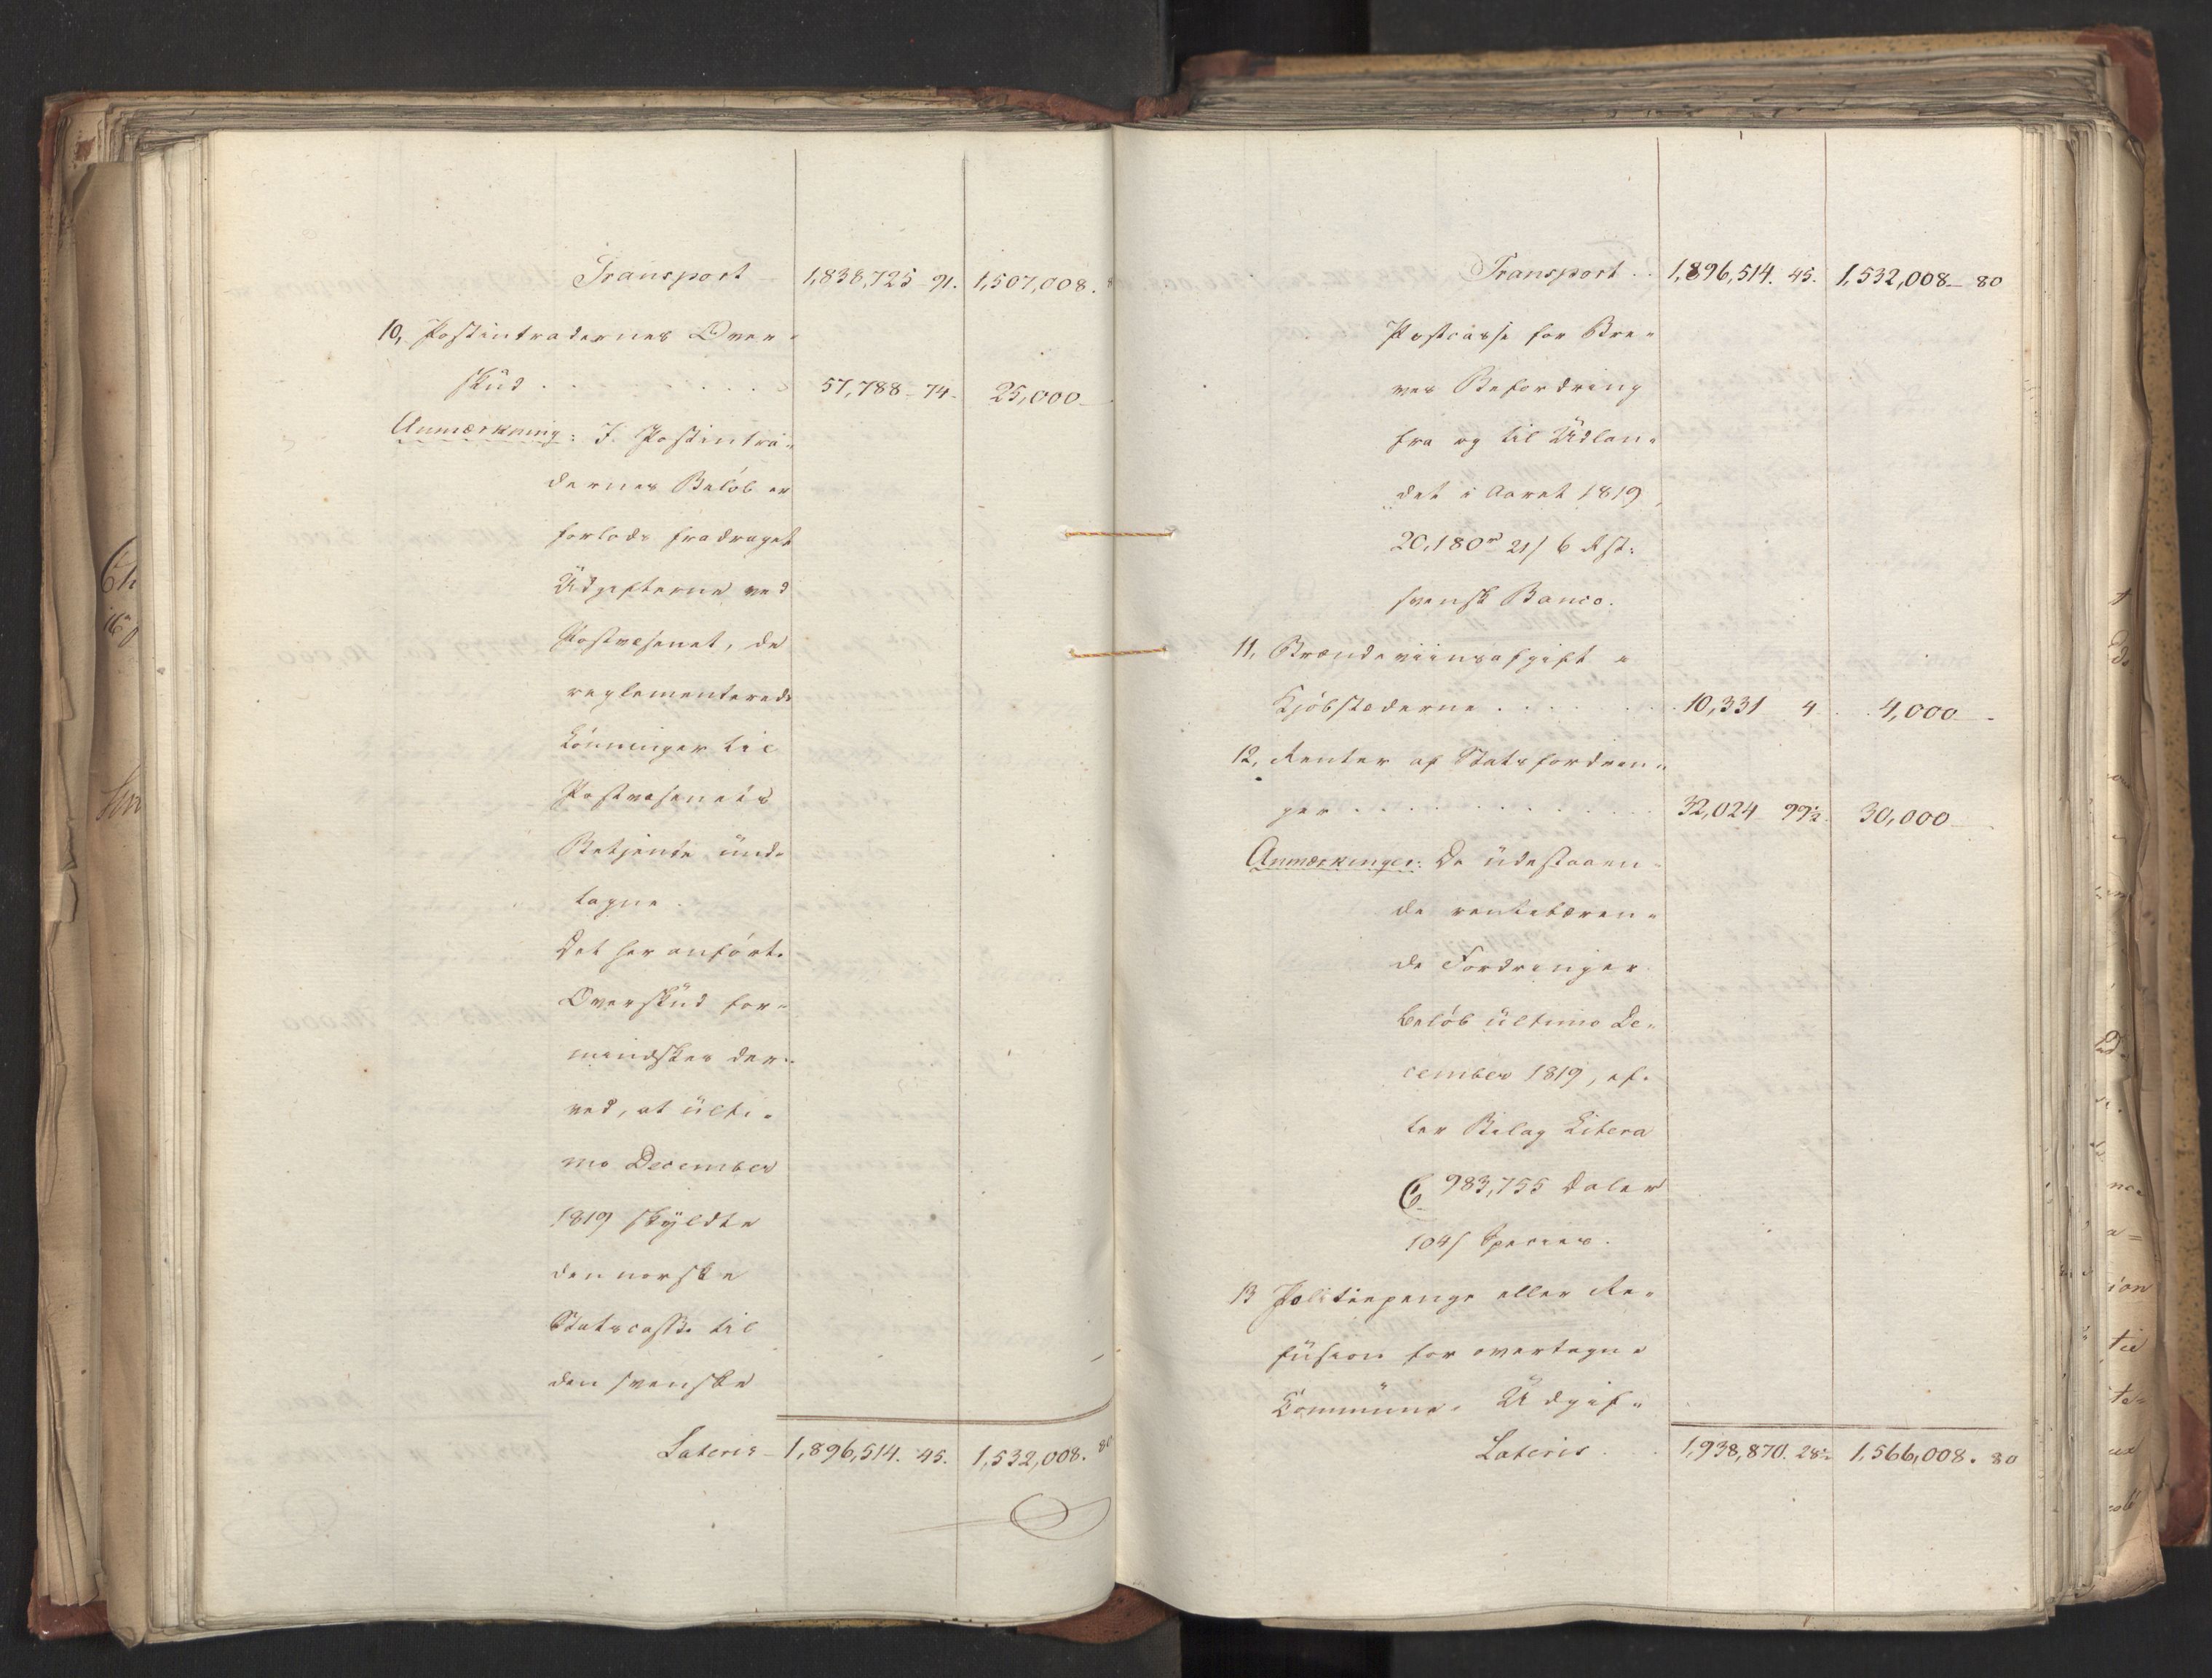 Transport - 1,838,725 - 91. 1,507,008. 8
10, Postintradernes Over-
skud . . . . . . . . 57,788 - 74. 25,000.
Anmærkning: I Postintra-
dernes Beløb er
forlods fradraget
Udgifterne ved
Postvæsenet, de
reglementerede
Lønninger til
Postvæsenets
Betjente, und-
tagne.
Det her anførte
Overskud for-
mindskes der-
ved, at ulti-
mo December
1819 skyldte
den norske
Statscasse til
den svenske
Lateris - 1,896,514. 45. 1,532,008. 80
Transport . . 1,896,514. 45. 1,532,008 - 80
Postcasse for Bre-
ves Befordring
fra og til Udlan-
det i Aaret 1819,
20,180 rd 21/ 6 Rst:
svensk Banco.
11, Brændeviinsafgift i
Kjøbstæderne . . . . . . 10,331 4 . . 4,000 -
12, Renter af Statsfordrin-
ger . . . . . . . . . . 32,024 99½. 30,000 -
Anmærkninger: De udestaaen-
de rentebæren-
de Fordringer
beløb ultimo De-
cember 1819, ef-
ter Bilag Litera
C 983,755 Daler
104/ Species.
13 Politiepenge eller Re-
fusion for overtagne
Commune- Udgif-
Lateris . . 1,938,870. 28½ 1,566,008. 80